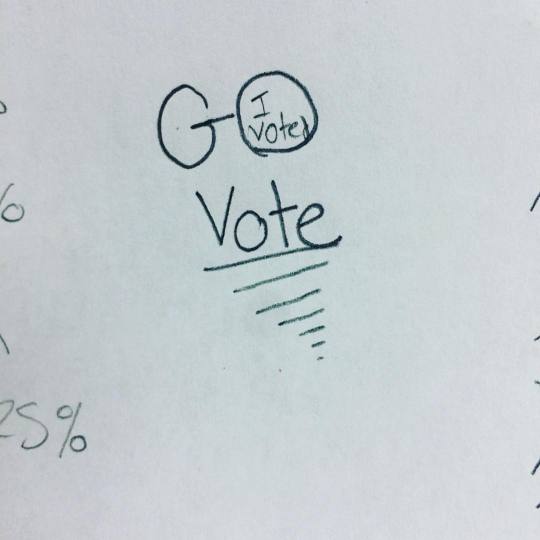 GO
I
voted
Vote
%
25%